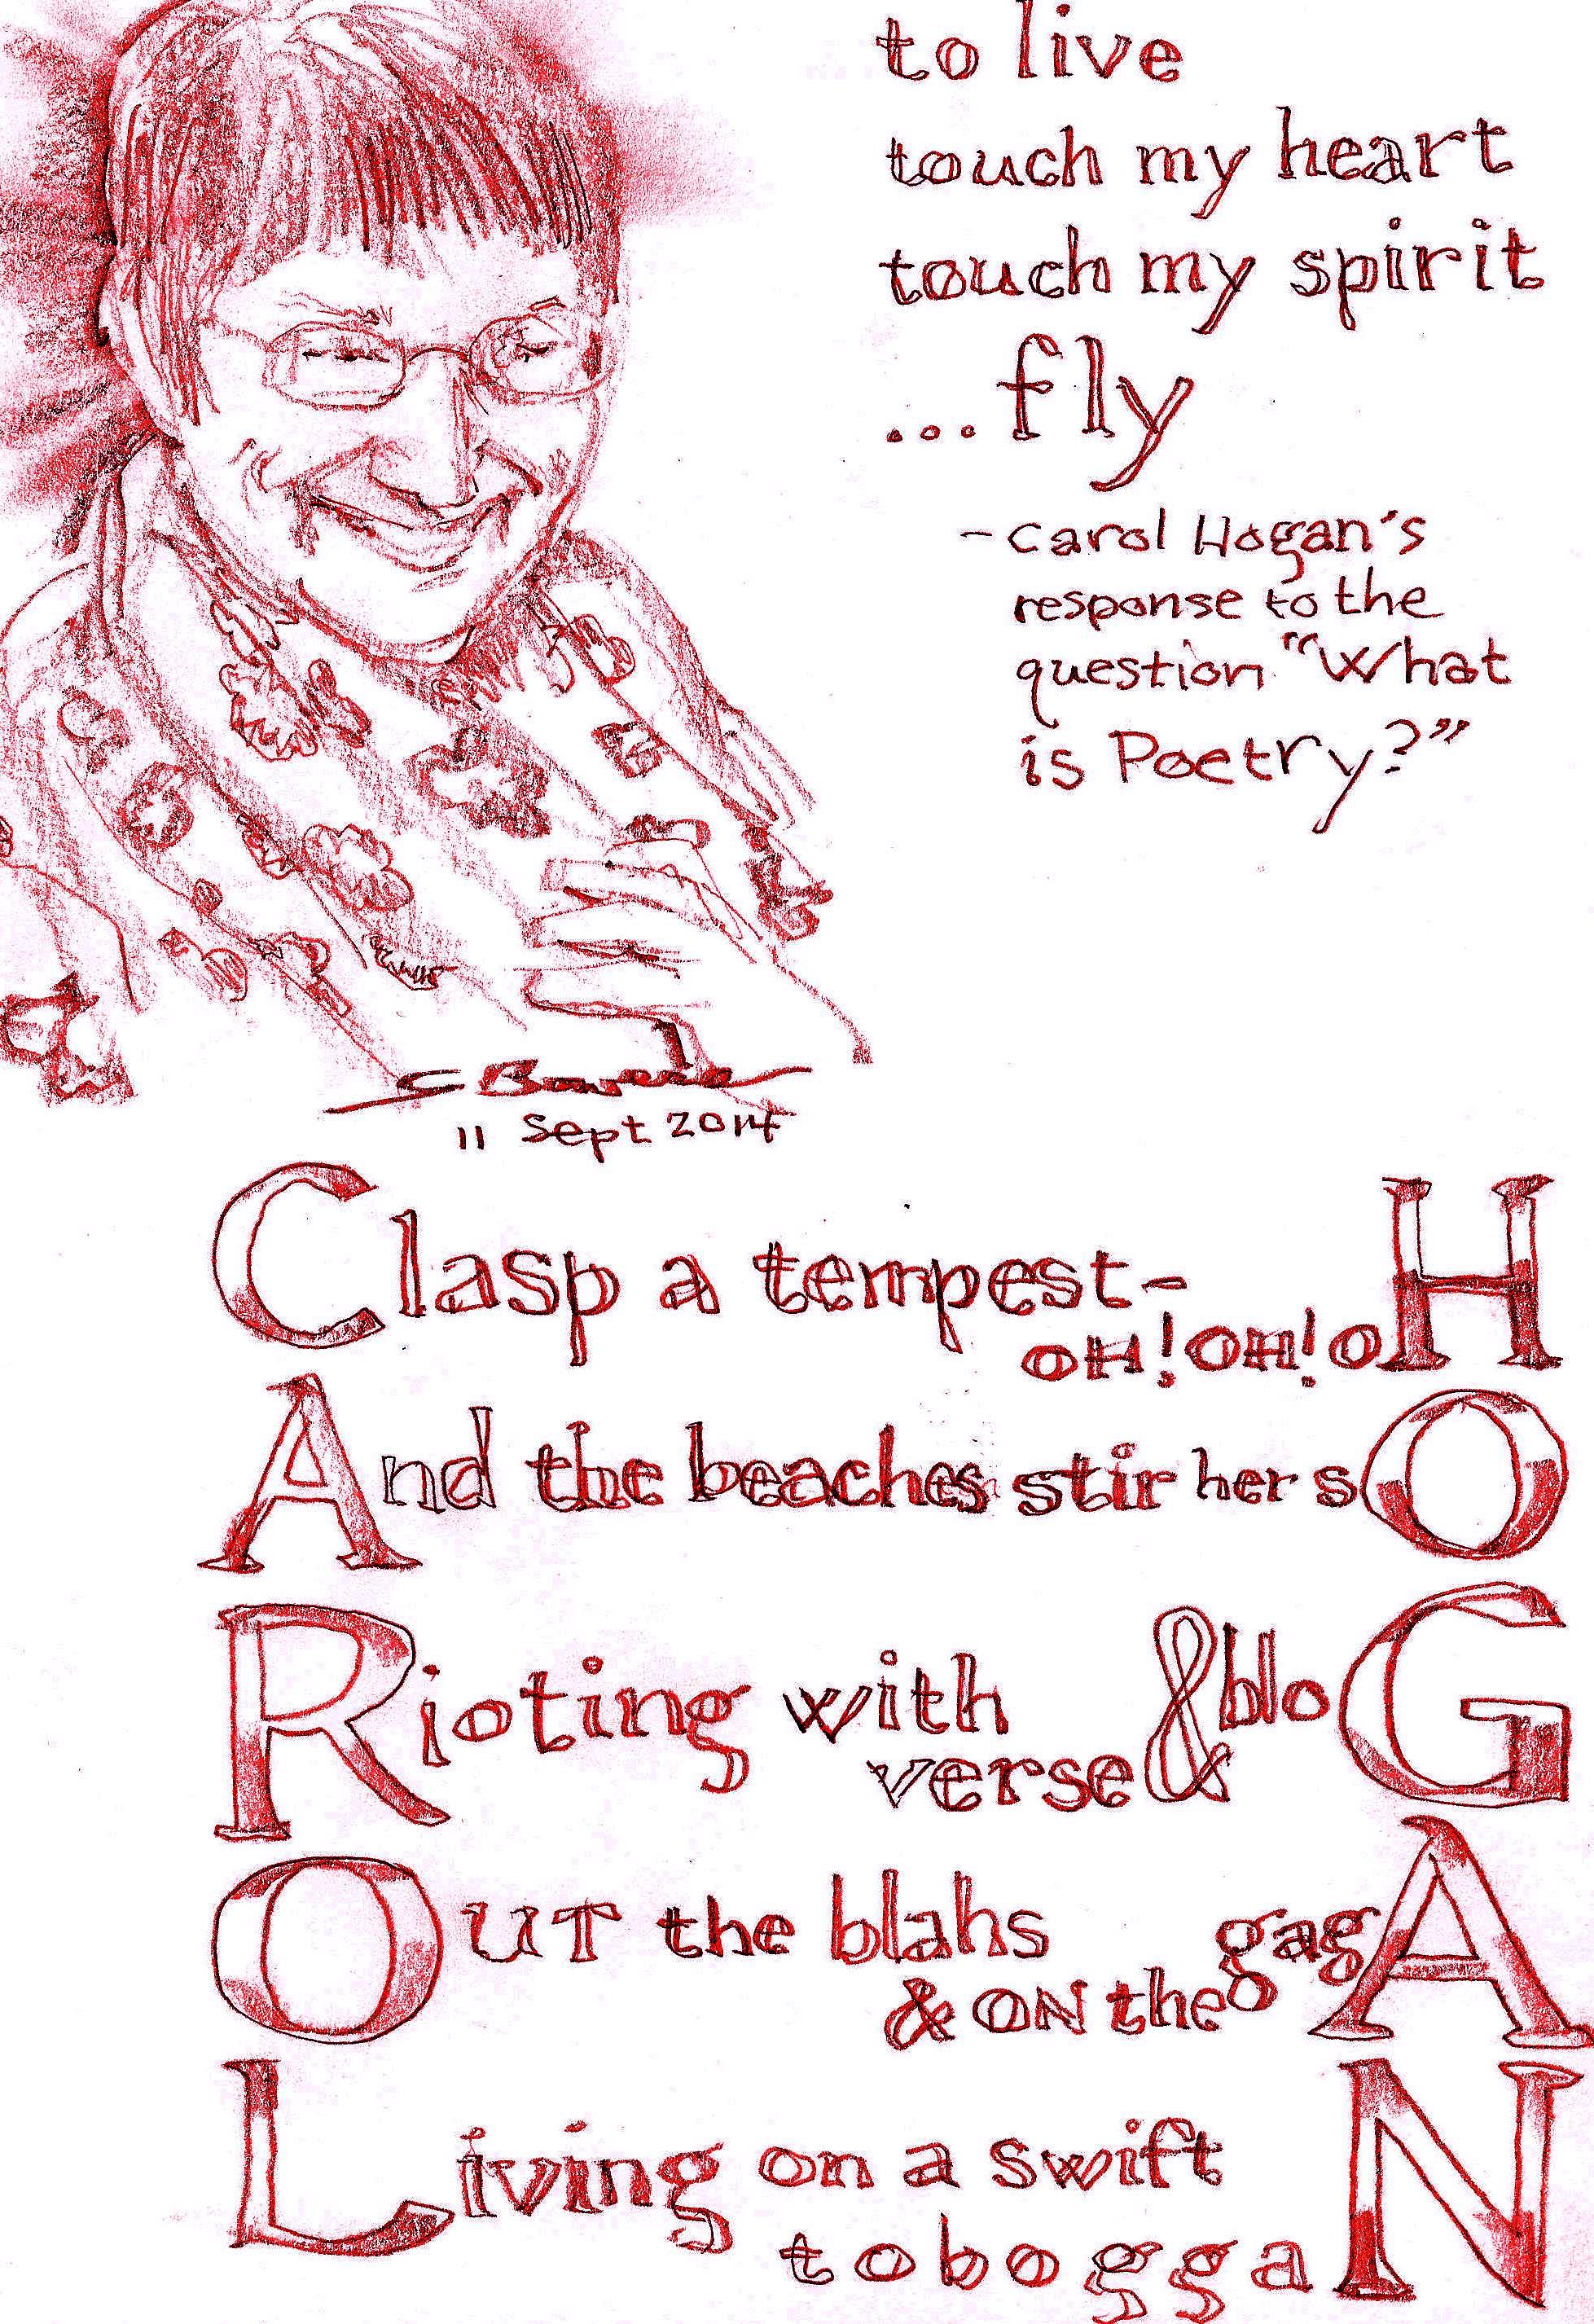 to live
touch my heart
touch my spirit
...fly
- Carol Hogan's
response to the
question "What
is Poetry?"
11 Sept 2014
Clasp a tempest-
OH! OH! OH
And the beaches stir her sO
Rioting with
verse & bloG
OUT the blahs
& ON the gagA
Living on a swift
toboggaN